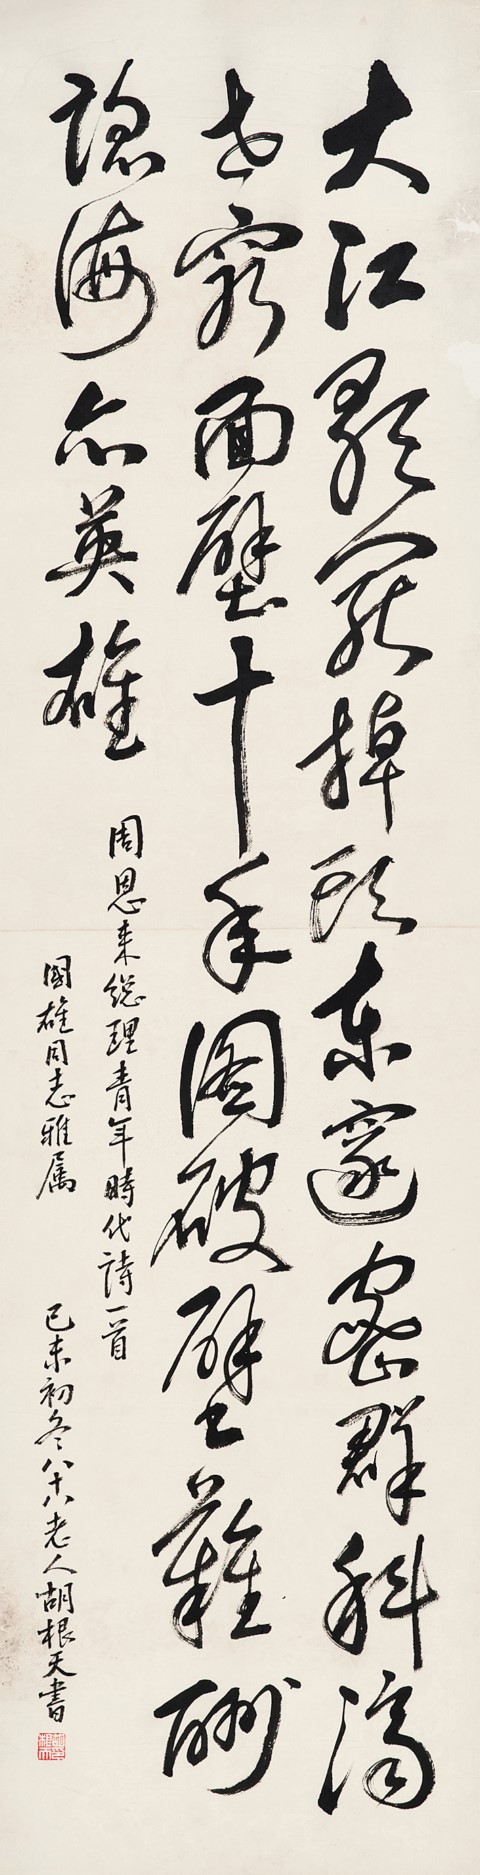 大江歌罷掉頭東邃密群科濟
世窮面壁十年圖破壁難酬
蹈海亦英雄
周恩来總理青年時代詩一首
國雄同志雅属
己未初冬八十八老人胡根天書